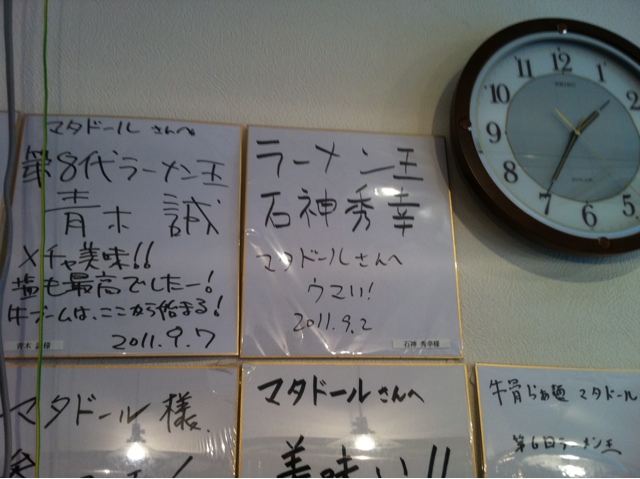 マタドールさんへ
第8代ラーメン王
青木 誠
メチャ美味!!
塩も最高でしたー!
牛ブームは、ここから始まる!
2011.9.7
青木 誠様
ラーメン王
石神秀幸
マタドールさんへ
ウマい!
2011.9.2
石神 秀幸様
マタドール様
マタドールさんへ
美味い!!
牛骨らぁ麺 マタドール
第6回ラーメン王
SEIKO
12
1
2
5
6
7
8
9
10
11